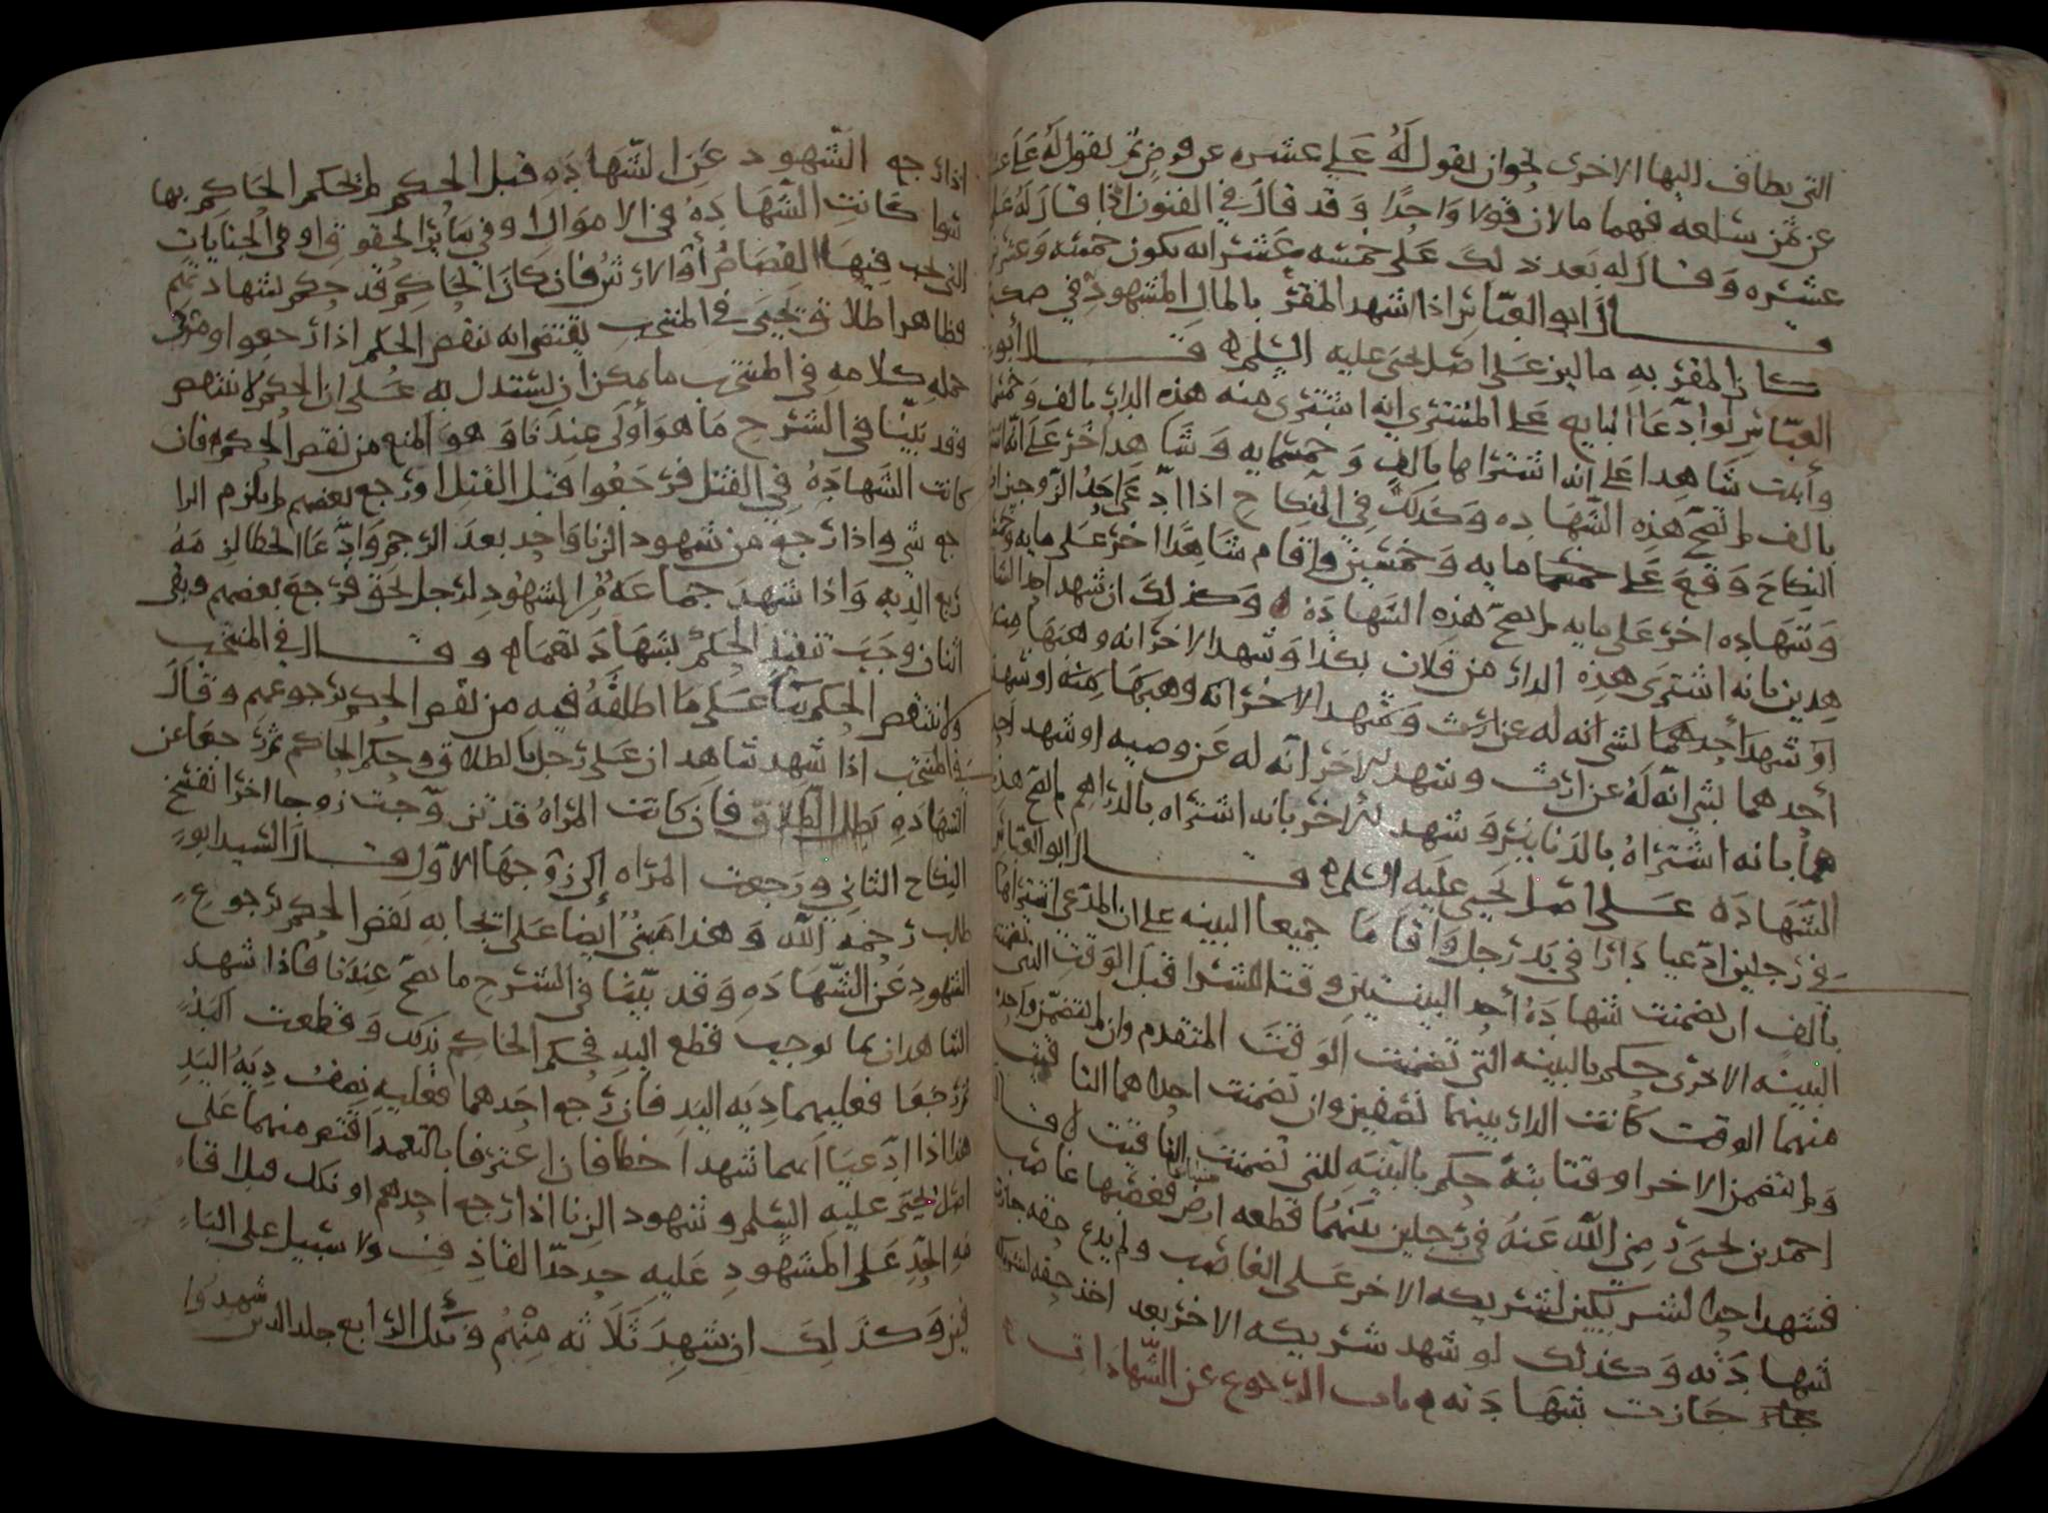 التي يضاف اليها الاخرى نحو ان يقول له علي عشره عن قرض ثم يقول له علي
عن ثمن سلعه فهما مالان قولا واحدا وقد قال في الفنون اذا قال له علي
عشره وقال له بعد ذلك علي خمسه عشر انه يكون خمسه وعشرين
قال ابو العباس اذا اشهد المقر بالمال المشهود في صك
كان المقر به مالين على اصل يحيى عليه السلم قال ابو
العباس لو ادعا البايع على المشتري انه اشترى منه هذه الدار بالف وخمسمايه
واقامت شاهدا على انه اشتراها بالف وخمسمايه وشاهدا اخر على انه اشتراها
بالف لم تصح هذه الشهاده وكذلك في النكاح اذا ادعى احد الزوجين ان
النكاح وقع على مايه وخمسين واقام شاهدا اخر على مايه وخمسين
وشهاده اخر على مايه لم تصح هذه الشهاده وكذلك ان شهد احد الشا
هدين بانه اشترى هذه الدار من فلان بكذا وشهد الاخر انه وهبها منه
او شهد احدهما لشي انه له عن ارث وشهد الاخر انه وهبها منه او شهد
احدهما بشي انه له عن ارث وشهد الاخر انه له عن وصيه او شهد احد
هما بانه اشتراه بالدنانير وشهد الاخر بانه اشتراه بالدراهم لم تصح هذه
الشهاده على اصل يحيى عليه السلم قال ابو العباس
في رجلين ادعيا دارا في يد رجل واقاما جميعا البينه على ان المدعي اشتراها
بالف ان تضمنت شهاده احد البينتين وقتا للشرا قبل الوقت الذي تضمنت
البينه الاخرى حكم بالبينه التي تضمنت الوقت المتقدم وان لم تتضمن واحده
منهما الوقت كانت الدار بينهما نصفين وان تضمنت احداهما التاقيت
ولم تتضمن الاخرى وقتا بته حكم بالبينه التي تضمنت التاقيت قال
احمد بن يحيى رضي الله عنه في رجلين بينهما قطعه ارض فغصبها غاصب
فشهد احد الشريكين لشريكه الاخر على الغاصب ولم يدع حقه جازت
شهادته وكذلك لو شهد شريكه الاخر بعد اخذ حقه لشريكه
جازت شهادته باب الرجوع عن الشهادات
اذا رجع الشهود عن الشهاده قبل الحكم لم يحكم الحاكم بها
سوا كانت الشهاده في الاموال او في سائر الحقوق او في الجنايات
التي يجب فيها القصاص او الارش فان كان الحاكم قد حكم بشهادتهم
فظاهر اطلاق يحيى في المنتخب يقتضي انه ينقض الحكم اذا رجعوا وفي
جمله كلامه في المنتخب ما يمكن ان يستدل به على ان الحكم لا ينتقض
وقد بينا في الشرح ما هو اولى عندنا وهو المنع من نقض الحكم فان
كانت الشهاده في القتل فرجعوا قبل القتل او رجع بعضهم لم يلزم الرا
جع شي واذا رجع من شهود الزنا واحد بعد الرجم وادعا الخطا لزمه
ربع الديه واذا شهد جماعه من الشهود لرجل بحق فرجع بعضهم وبقى
اثنان وجب تنفيذ الحكم بشهادتهما وقال في المنتخب
ولا ينتقض الحكم بنا على ما اطلقه فيه من نقض الحكم برجوعهم وقال
في المنتخب اذا شهد شاهدان على رجل بالطلاق وحكم الحاكم ثم رجعا عن
الشهاده بطل الطلاق فان كانت المراه قد تزوجت زوجا اخر انفسخ
النكاح الثاني ورجعت المراه الى زوجها الاول قال السيد ابو
طالب رحمه الله وهذا مبني ايضا على ايجابه نقض الحكم برجوع
الشهود عن الشهاده وقد بينا في الشرح ما يصح عندنا فاذا شهد
الشاهدان بما يوجب قطع اليد فحكم الحاكم بذلك وقطعت اليد
ثم رجعا فعليهما ديه اليد فان رجع احدهما فعليه نصف ديه اليد
هذا اذا ادعيا انهما شهدا خطا فان اعترفا بالتعمد اقتص منهما على
اصل يحيى عليه السلم وشهود الزنا اذا رجع احدهم او نكل قبل اقا
مه الحد على المشهود عليه حد حد القاذف ولا سبيل على البا
قين وكذلك ان شهد ثلاثه منهم ونكل الرابع جلد الذين شهدوا